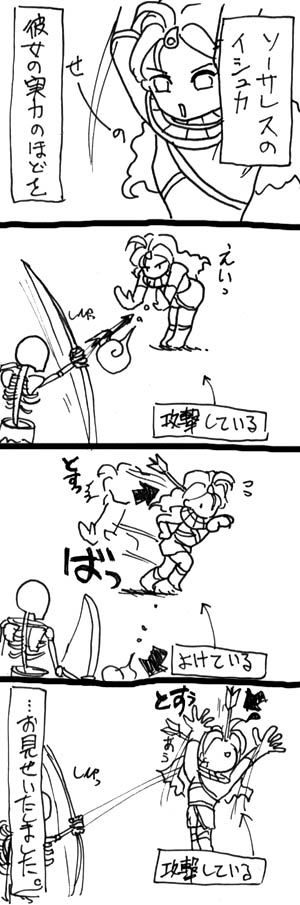 ソーサレスの
イシュカ
せ
の
彼女の実力のほどを
えいっ
攻撃している
とすっ
ばっ
よけている
とすぅ
あぅ
…お見せいたしました。
攻撃している